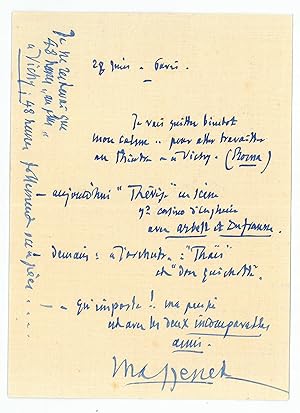 28 Juin - Paris.
Je vais quitter bientôt
mon calme.. pour aller travailler
au théâtre - à Vichy. (Roma)
- aujourd'hui "Thérèse" en scène
au casino d'Enghien
avec Arbell et Dufranne.
Demain : à l'orchestre : "Thaïs"
et "Don quichotte".
! - qu'importe !. ma pensée
est avec les deux incomparables
amis.
Massenet
Je ne resterai que
48 heures
à Vichy ; 48 heures